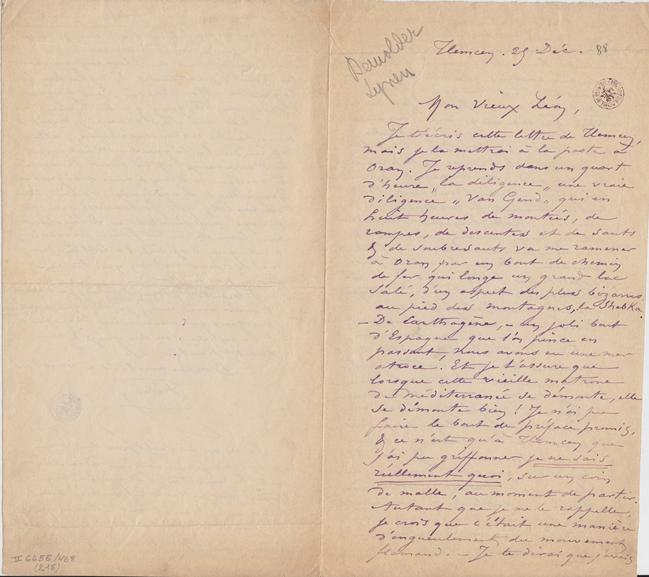 Demolder
Tlemcen. 25 Déc. 88
Mon vieux Léon,
Je t'écris cette lettre de Tlemcen,
mais je la mettrai à la poste à
Oran. Je reprends dans un quart
d'heure „la diligence„ une vraie
diligence „Van Gend„ qui en
huit heures de montées, de
rampes, de descentes et de sauts
& de soubresauts va me ramener
à Oran par un bout de chemin
de fer qui longe un grand lac
salé, d'un aspect des plus bizarres
au pied des montagnes, la Shebka.
– De Carthagène, – un joli bout
d'Espagne que l'on pince en
passant, nous avons eu une mer
atroce. Et je t'assure que
lorsque cette vieille matrone
de Méditerranée se démonte, elle
se démonte bien! Je n'ai pu
faire le bout de préface promis,
& ce n'est qu'à Tlemcen que
j'ai pu griffonner je ne sais
réellement quoi, sur un coin
de malle, au moment de partir.
Autant que je me le rappelle,
je crois que c'était une manière
d'engueulement du mouvement
flamand. – Je te dirai que
II 6655/468